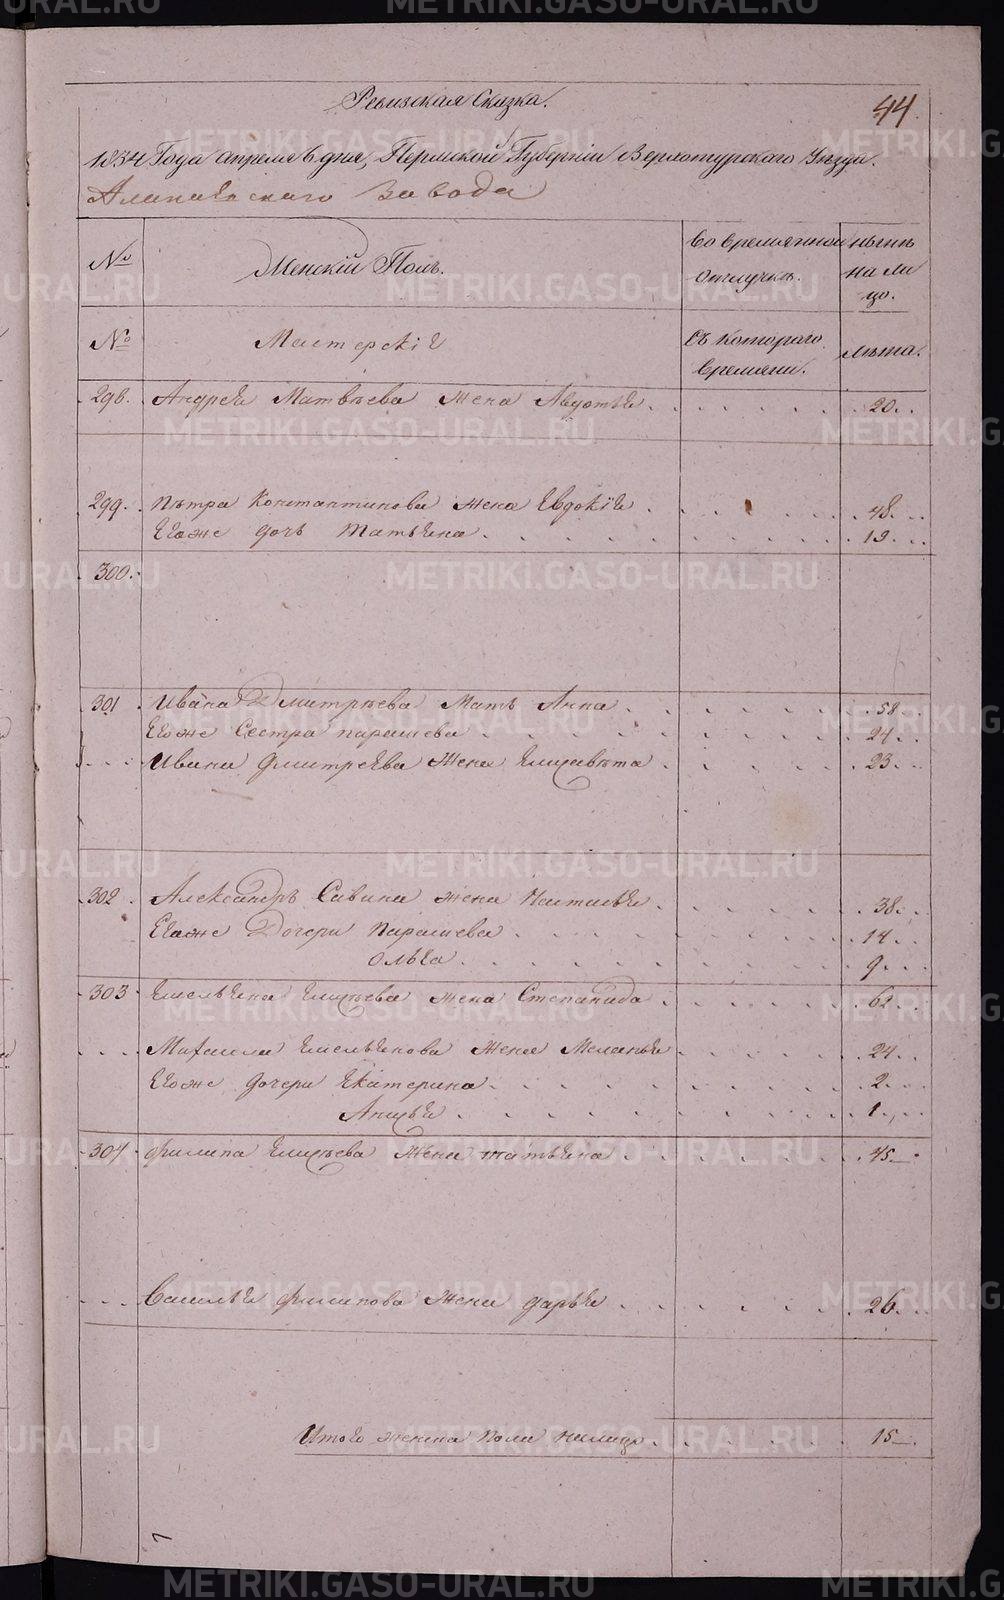 Ревизская Сказка.
44.
1834 Года апреля 6 дня, Пермской Губерніи Верхотурскаго Уезда.
Алапаевскаго Завода
№ Женскій Полъ. Во временной отлучкѣ. нынѣ на лицо.
№ Мастерскіе Съ котораго времяни. лѣта.
298. Андрея Матвѣева жена Авдотья 20.
299. Пѣтра Константинова жена Евдокія 48.
Егоже дочь Татьяна 19.
300.
301 Ивана Дмитрѣева Мать Анна 58
Егоже Сестра парасъкева 24
Ивана Дмитреева Жена Елизавѣта 23.
302. Александръ Савина жена Настасья 38.
Егоже Дочери Параскева 14
Ольга 9.
303 Емельяна Елисѣева жена Степанида 62.
Михаила Емельянова Жена Меланья 24
Егоже дочери Екатерина 2.
Анисья 1.
304 филипа Елисѣева Жена татьяна 45
Василья филипова Жена дарья 26.
Итого женска Пола налицо 15
METRIKI.GASO-URAL.RU